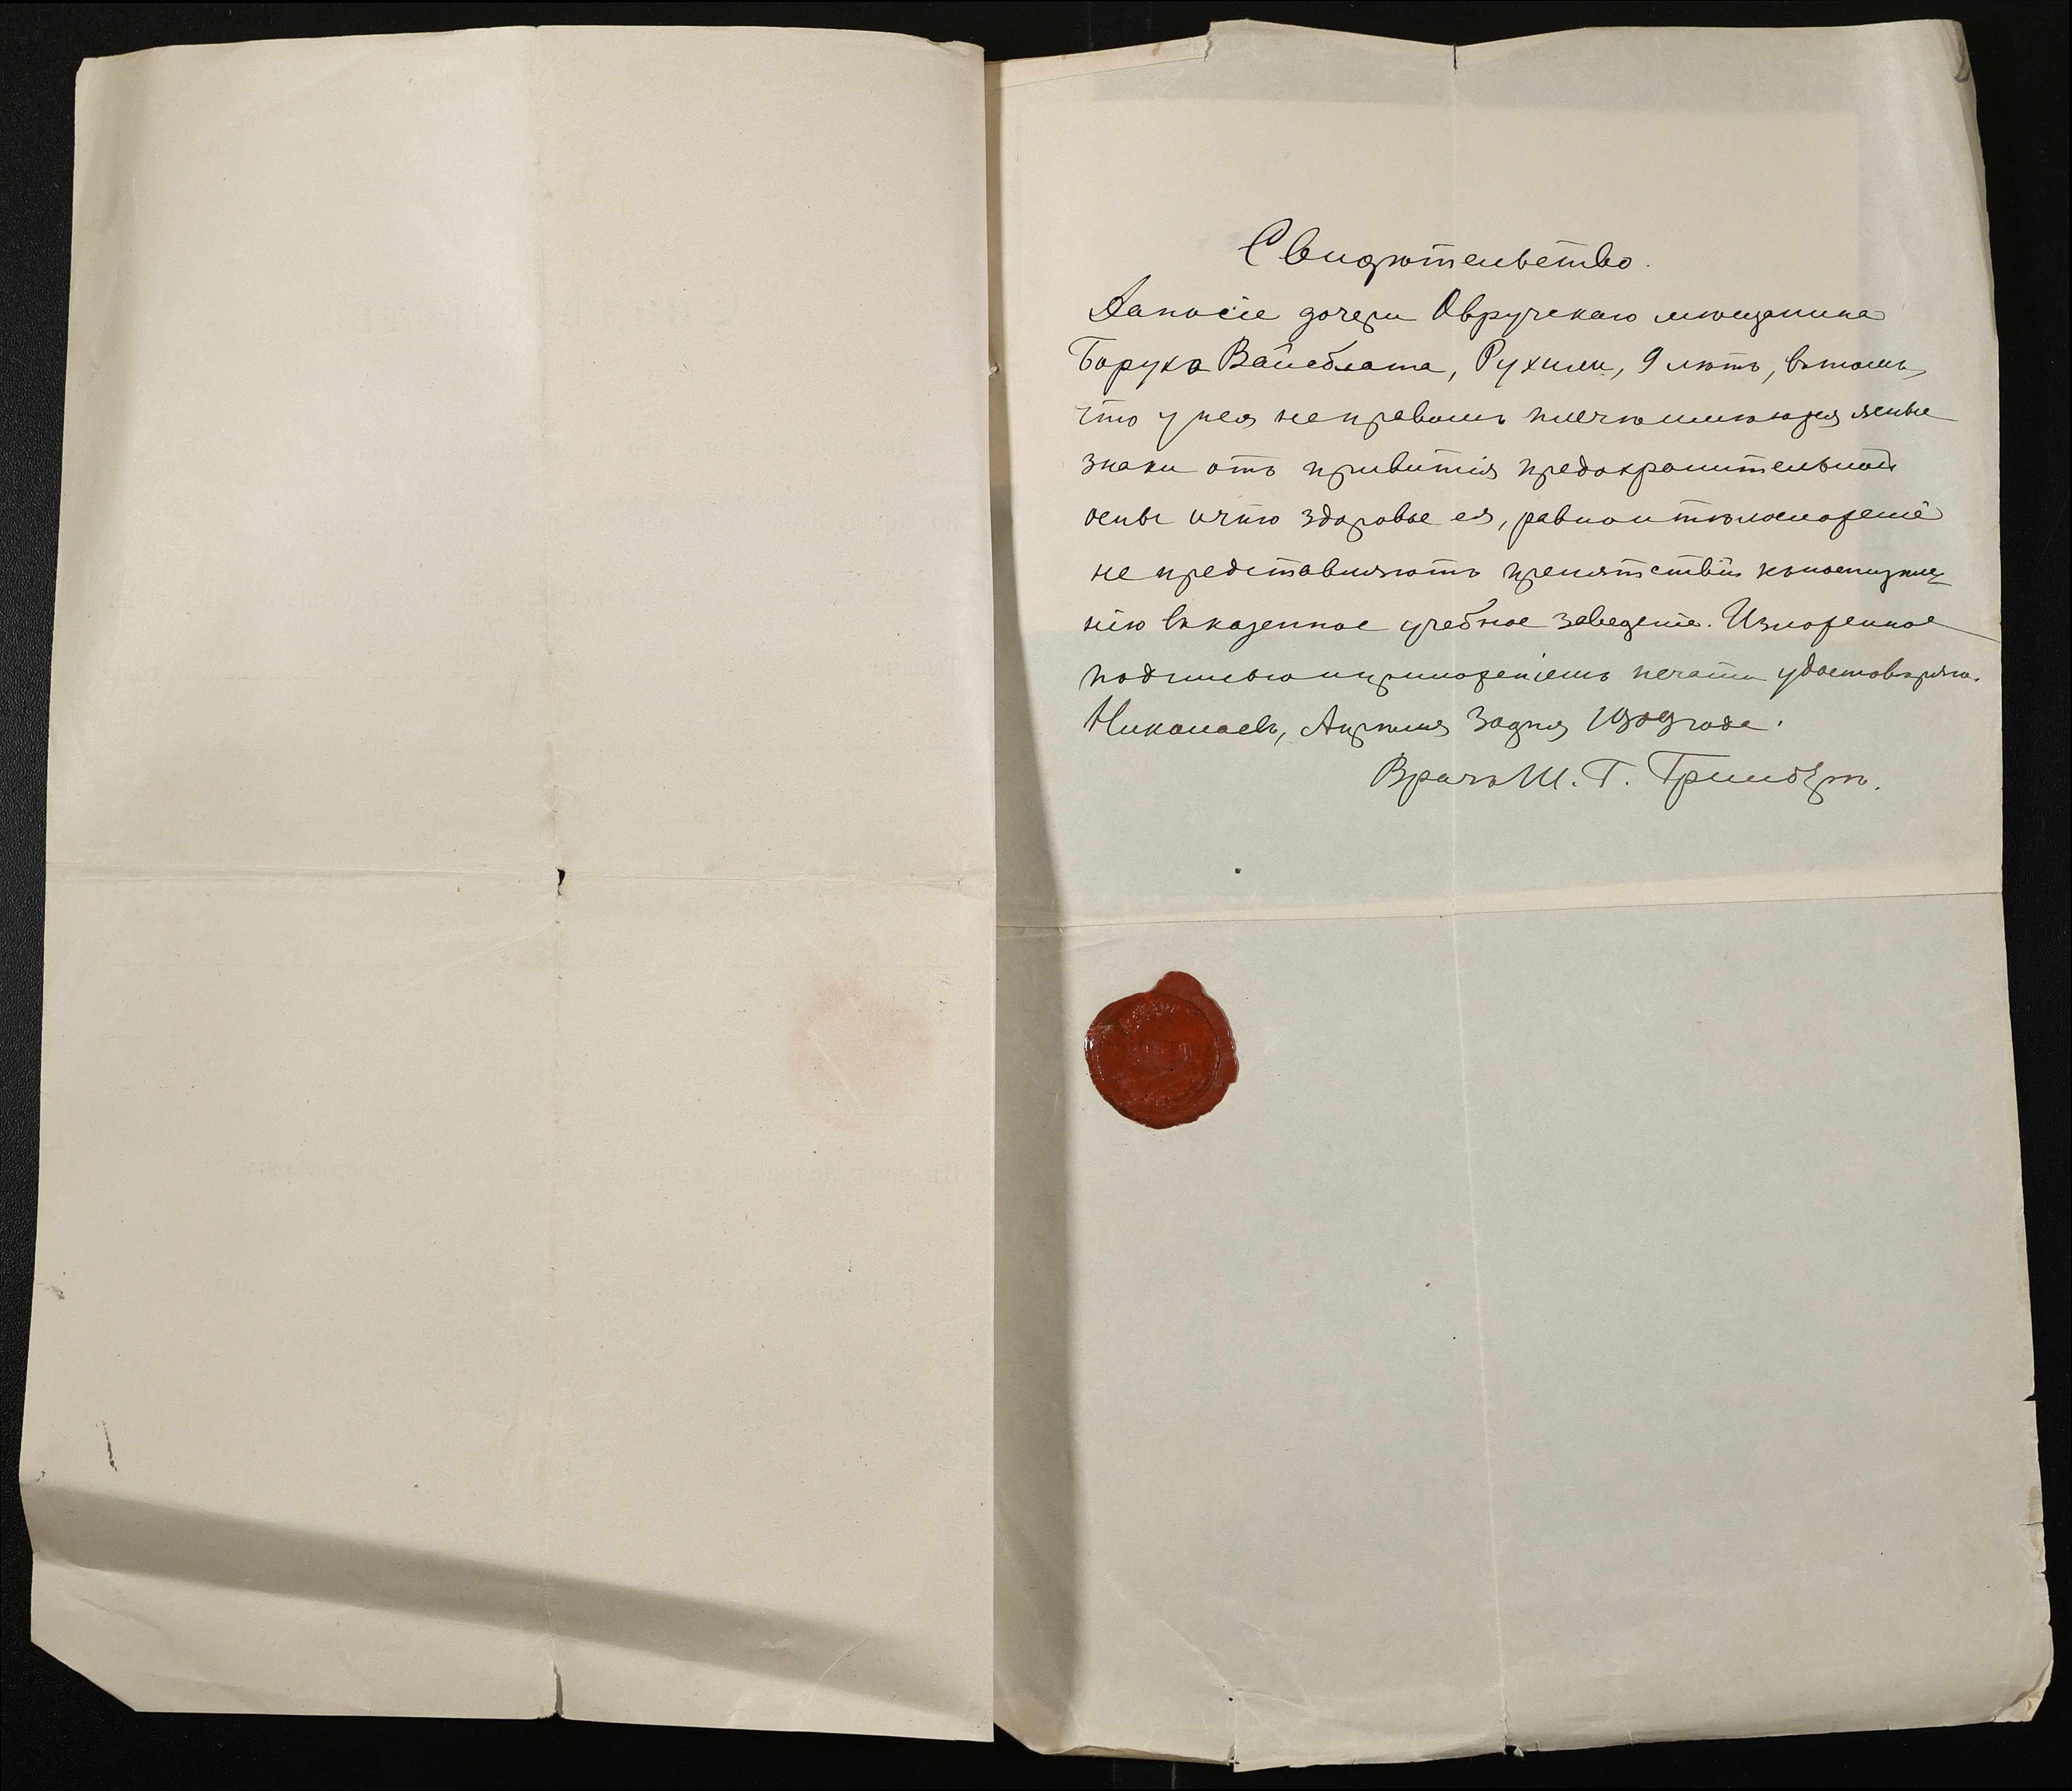 Свидѣтельство.
Дано сіе дочери Овручскаго мѣщанина
Боруха Вайсблата, Рухили, 9 лѣтъ, въ томъ,
что у нея на правомъ плечѣ имѣются ясные
знаки отъ привитія предохранительной
оспы и что здоровье ея, равно и тѣлосложеніе
не представляютъ препятствій къ поступле-
нію въ казенное учебное заведеніе. Изложенное
подписью и приложеніемъ печати удостовѣряю.
Николаевъ, Апрѣля 3 дня 1909 года.
Врачъ Ш. Г.